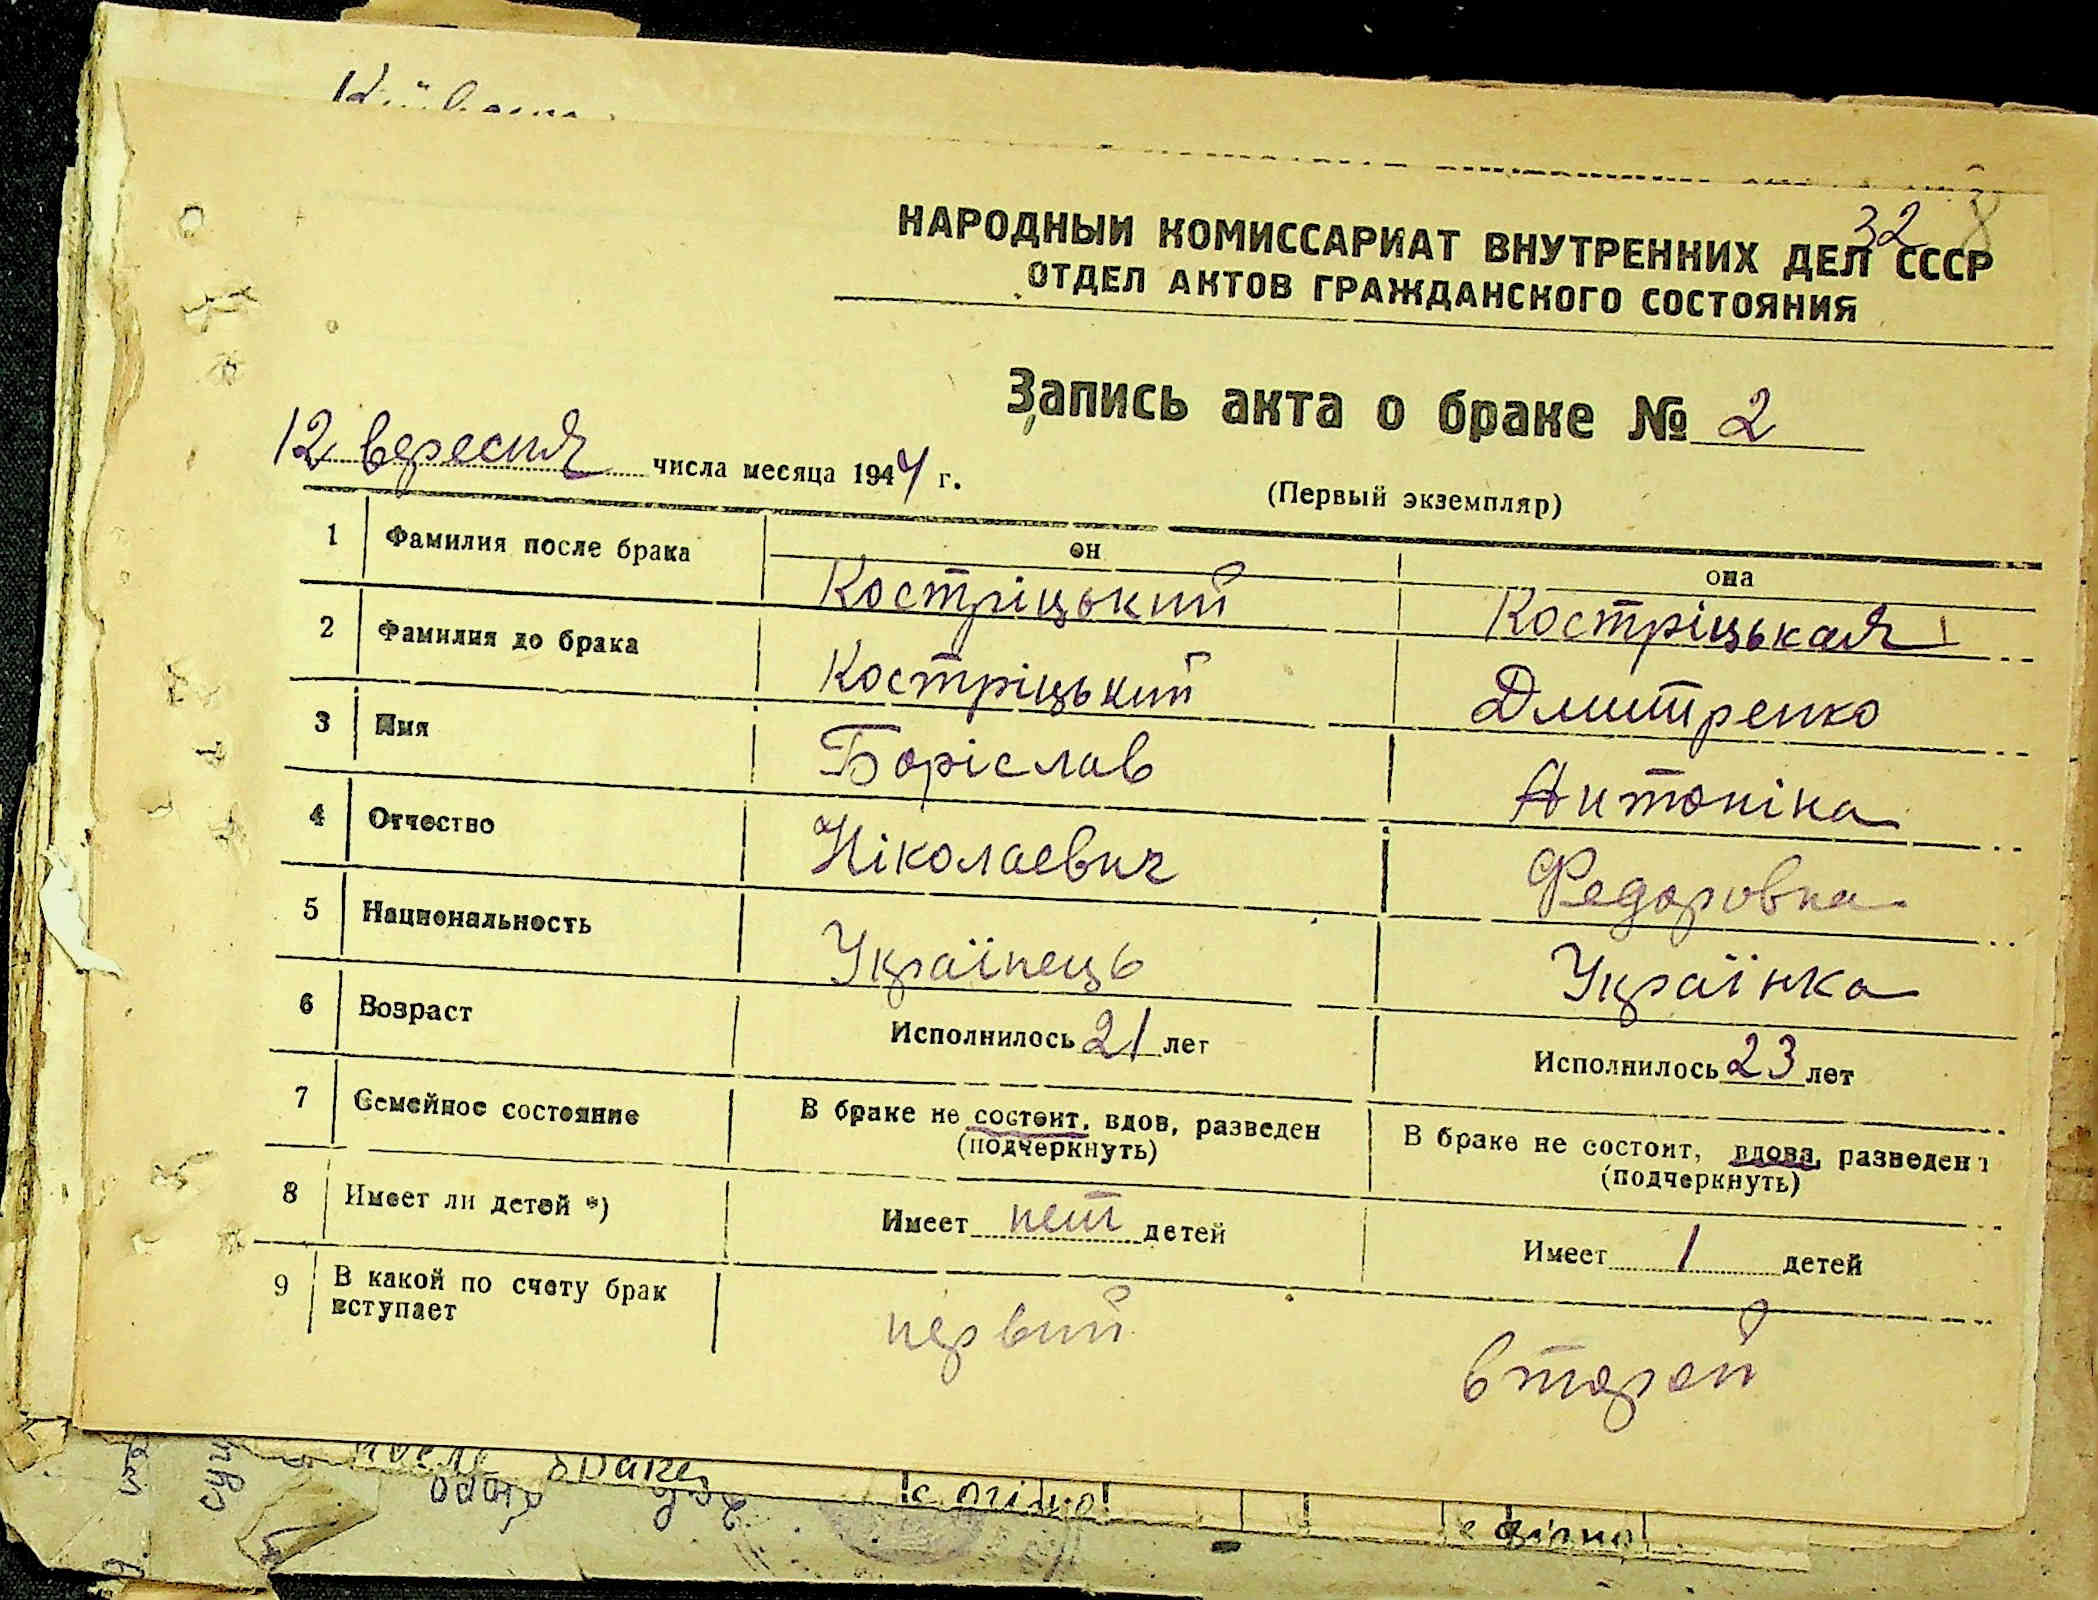 32 8
НАРОДНЫЙ КОМИССАРИАТ ВНУТРЕННИХ ДЕЛ СССР
ОТДЕЛ АКТОВ ГРАЖДАНСКОГО СОСТОЯНИЯ
Запись акта о браке № 2
12 вересня числа месяца 1944 г.
(Первый экземпляр)
он она
1 Фамилия после брака Костріцький Костріцькая
2 Фамилия до брака Костріцький Дмитренко
3 Имя Боріслав Антоніна
4 Отчество Ніколаевич Федоровна
5 Национальность Українець Українка
6 Возраст Исполнилось 21 лет Исполнилось 23 лет
7 Семейное состояние В браке не состоит, вдов, разведен В браке не состоит, вдова, разведен
(подчеркнуть) (подчеркнуть)
8 Имеет ли детей *) Имеет нет детей Имеет 1 детей
9 В какой по счету брак
вступает первий второй
после брака